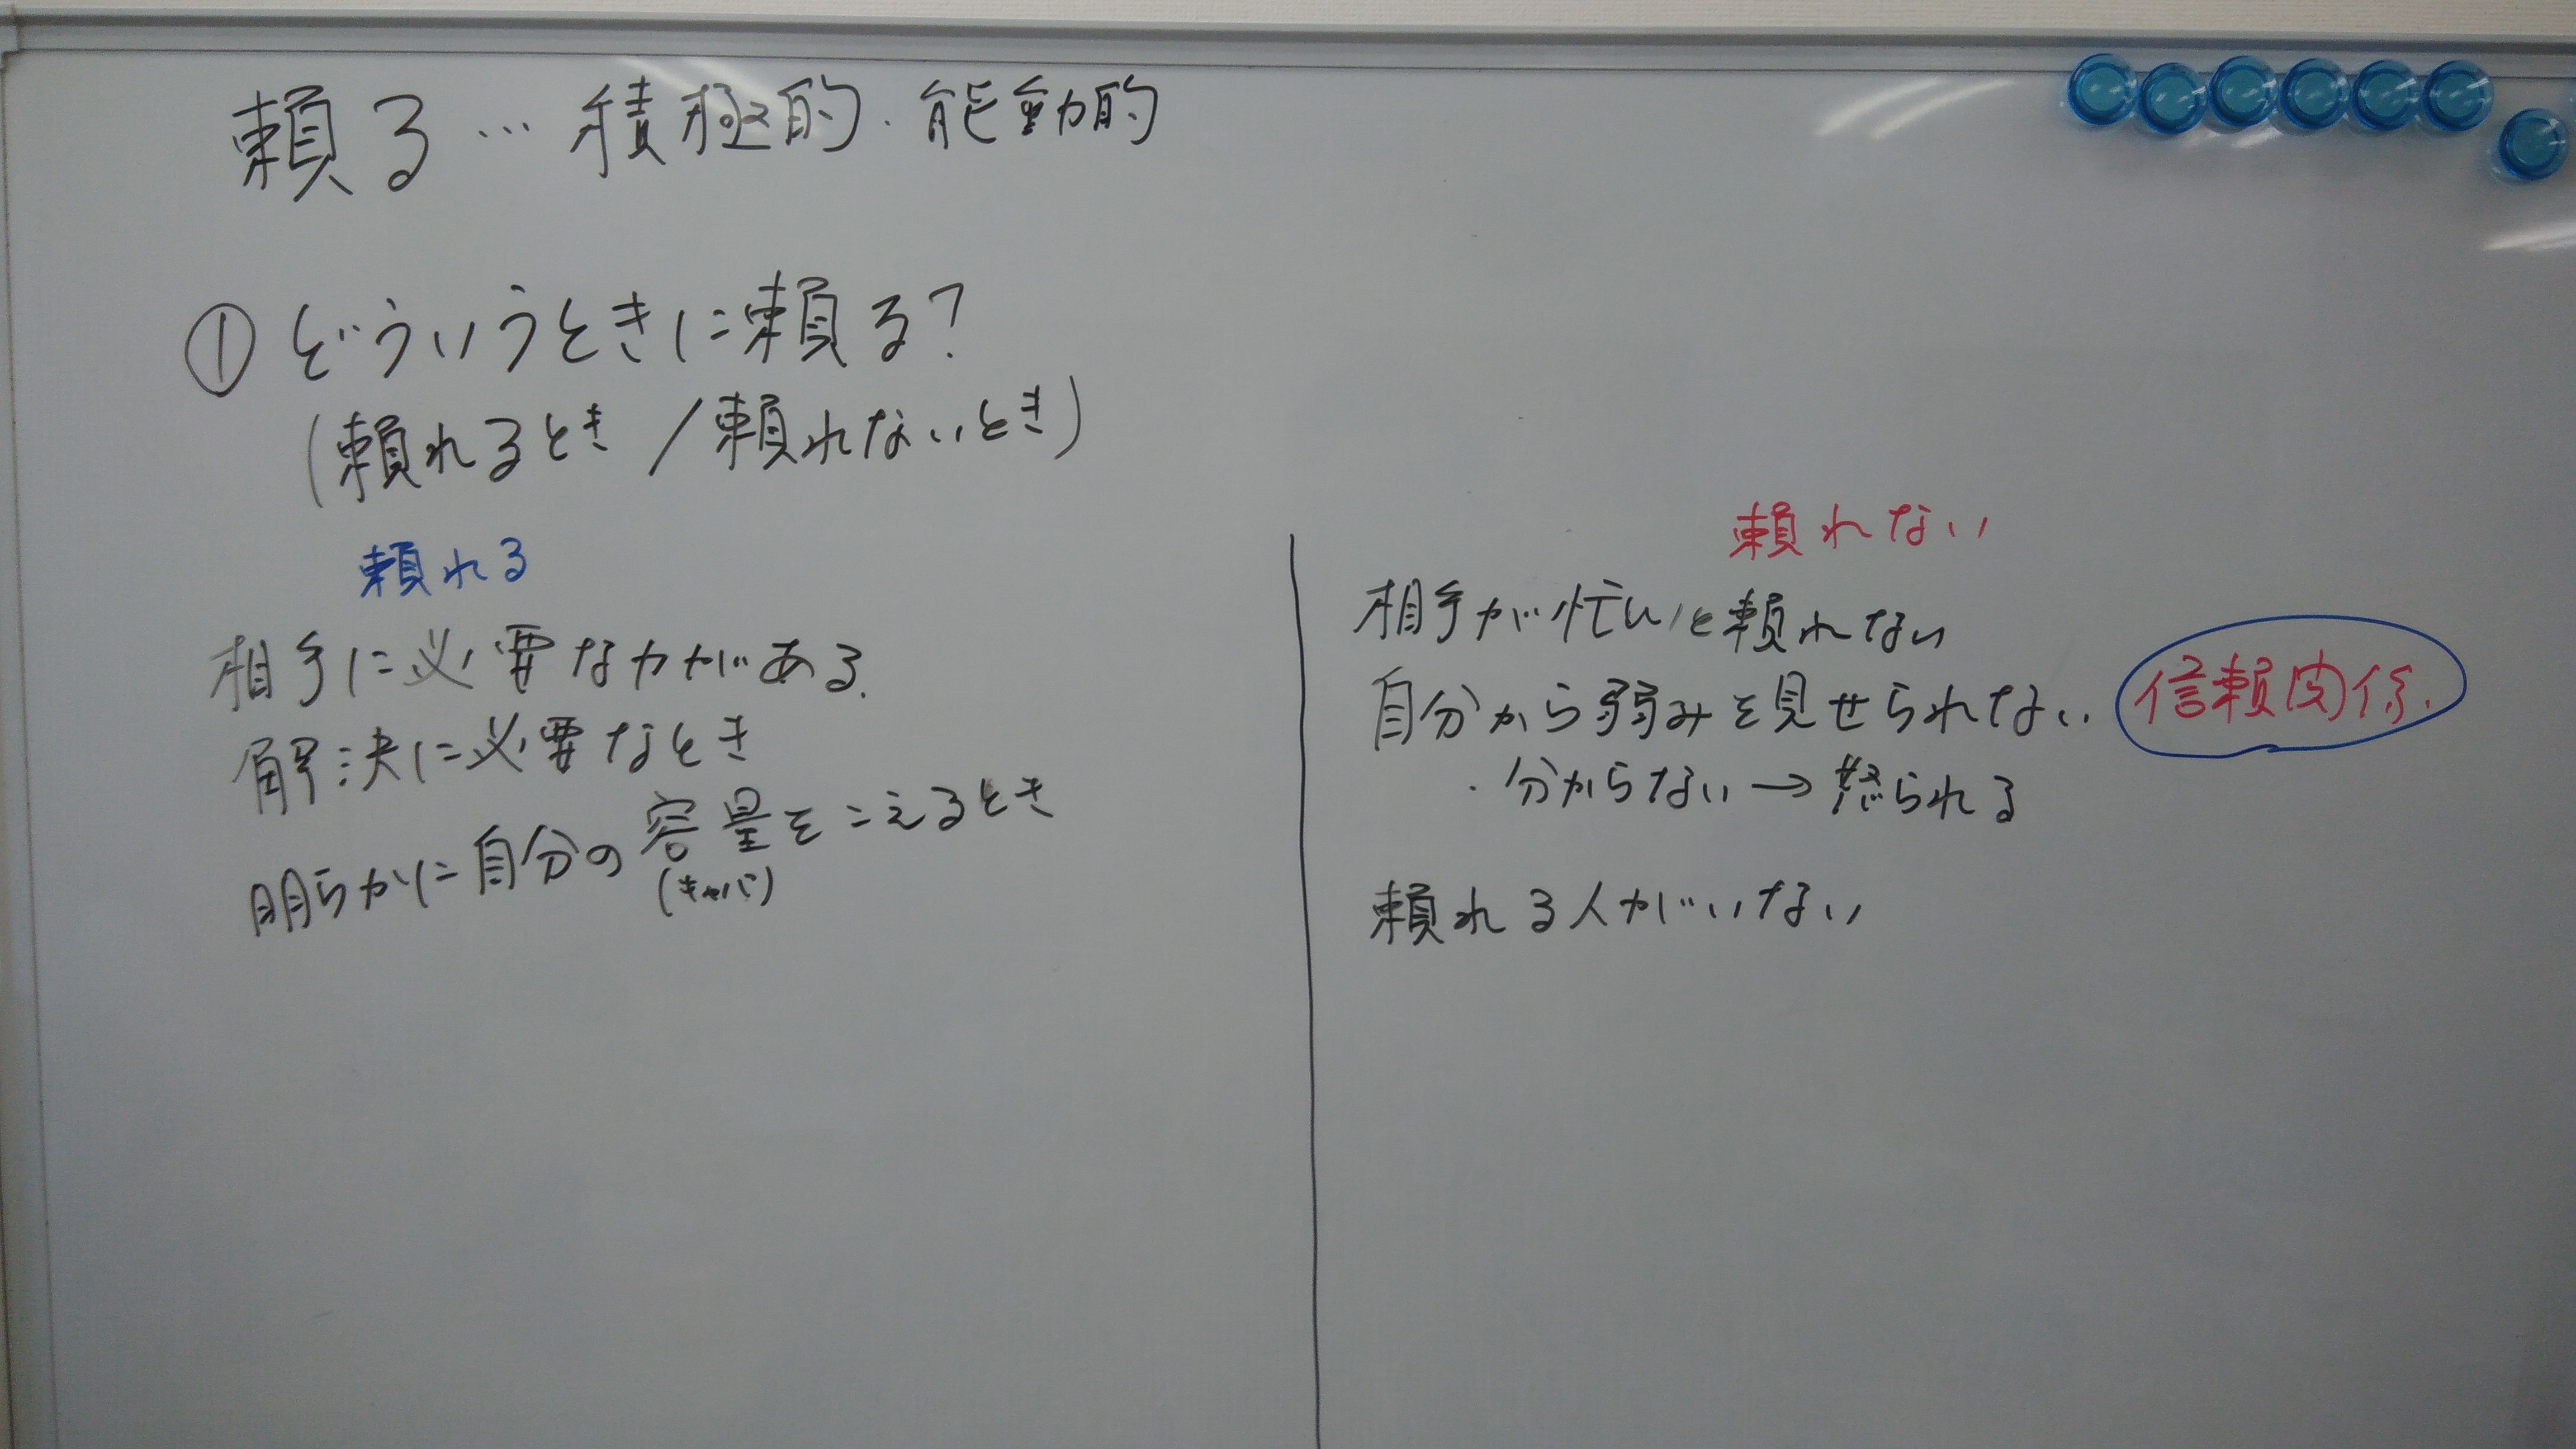 頼る…積極的・能動的
① どういうときに頼る?
(頼れるとき/頼れないとき)
頼れる
相手に必要な力がある.
解決に必要なとき
明らかに自分の容量をこえるとき
(キャパ)
頼れない
相手が忙しいと頼れない
自分から弱みを見せられない
信頼関係.
・分からない→怒られる
頼れる人がいない